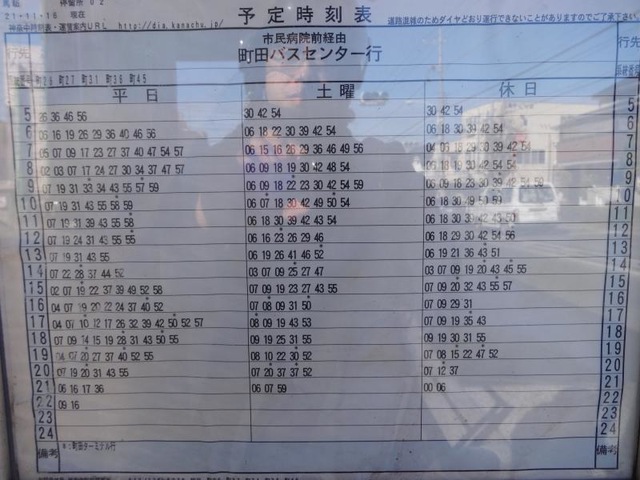 停留所 02
21-11-16 現在
予定時刻表
神奈中時刻表・運賃案内URL http://dia.kanachu.jp/
道路混雑のためダイヤどおり運行できないことがありますのでご了承下さい
行先 市民病院前経由 行先
町田バスセンター行
町26 町27 町31 町36 町45
平日 土曜 休日
5 26 36 46 56 30 42 54 30 42 54 5
6 06 16 19 26 29 36 40 46 56 06 18 22 30 39 42 54 06 18 30 39 42 54 6
7 05 07 09 17 23 27 37 40 47 54 57 06 15 16 26 29 36 46 49 56 04 06 18 30 39 42 54 7
8 02 03 07 17 24 27 30 34 37 47 57 06 09 18 19 30 42 48 54 06 18 19 30 42 54 8
9 07 19 31 33 34 43 55 57 59 06 09 18 22 23 30 42 54 59 06 09 18 23 30 39 42 54 59 9
10 07 19 31 43 55 58 59 06 07 18 30 42 49 50 54 06 18 30 49 50 59 10
11 07 19 31 39 43 55 58 06 18 30 39 42 43 54 06 18 30 39 42 43 50 11
12 07 19 24 31 43 55 55 06 16 23 26 29 46 06 18 29 30 42 54 56 12
13 07 19 31 43 55 06 19 26 41 46 52 06 19 21 36 43 51 13
14 07 22 28 37 44 52 03 07 09 25 27 47 03 07 09 19 20 43 45 55 14
15 02 07 19 22 37 39 49 52 58 07 09 19 23 27 43 55 07 09 20 32 43 55 57 15
16 04 07 19 20 22 24 37 40 52 07 08 09 31 50 07 09 29 31 16
17 04 07 10 12 17 26 32 39 42 50 52 57 08 09 19 43 53 07 09 19 35 43 17
18 07 09 14 15 19 28 31 43 50 55 09 19 25 31 55 09 19 30 31 55 18
19 04 07 20 27 37 40 52 55 08 10 22 30 52 07 08 15 22 47 52 19
20 07 19 20 31 43 55 07 20 37 37 52 07 12 37 20
21 06 16 17 36 06 07 59 00 06 21
22 09 16 22
23 23
24 24
備考 *:町田ターミナル行 備考